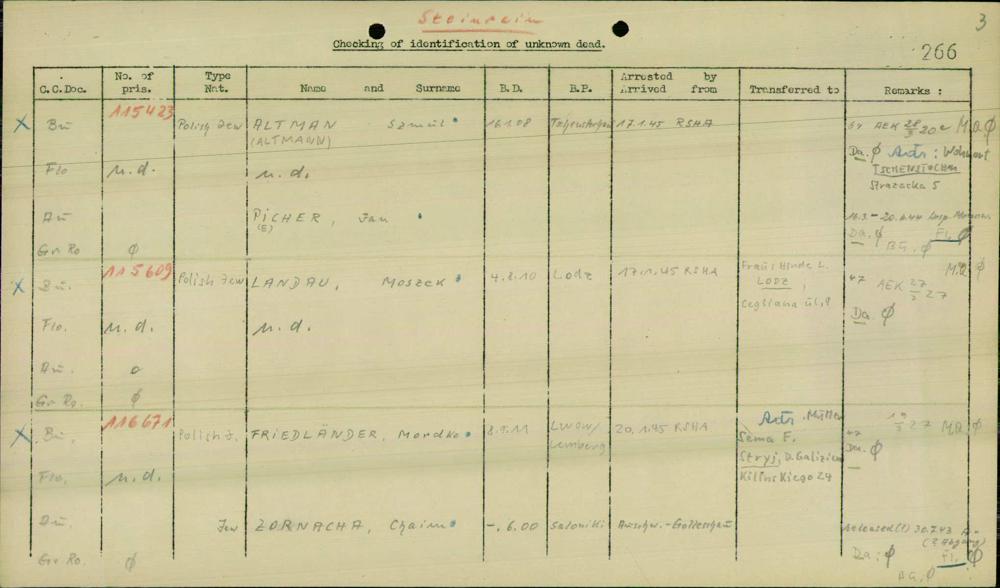 Steinrain
3
Checking of identification of unknown dead.
266
C.C.Doc. No. of pris. Type Nat. Name and Surname B.D. B.P. Arrested by Arrived from Transferred to Remarks :
X Bu 115423 Polish Jew ALTMAN Szmul 16.1.08 17.1.45 RSHA 47 AEK 28/3 20 M.Q. Ø
(ALTMANN)
Da. Ø Adr: Wohnort
TSCHENSTOCHAU
Strazacka 5
Flo n.d. n.d.
Au PICHER, Jan
(E)
Da. Ø Fl. Ø
BG. Ø
Gr. Ro Ø
X Bu. 115609 Polish Jew LANDAU, Moszek 4.8.10 Lodz 17.1.45 RSHA Frau: Hinde L. M.Q. Ø
LODZ, 47 AEK 27/3 27
Da. Ø
Flo. n.d. n.d.
Au. o
Gr. Ro. Ø
X Bu. 116671 Polish J. FRIEDLÄNDER, Mordko 8.9.11 Lwow/ Lemberg 20.1.45 RSHA Adr. Mutter 19/3 27 M.Q. Ø
Sema F. 47
Stryj, D. Galizien Da. Ø
Kilinskiego 24
Flo. n.d.
Au. Jew ZORNACHA, Chaim -.6.00 Saloniki Auschw.-Golleschau released(!) 30.7.43
(? Abgang)
Da: Ø Fl. Ø
Gr. Ro. Ø
BG. Ø